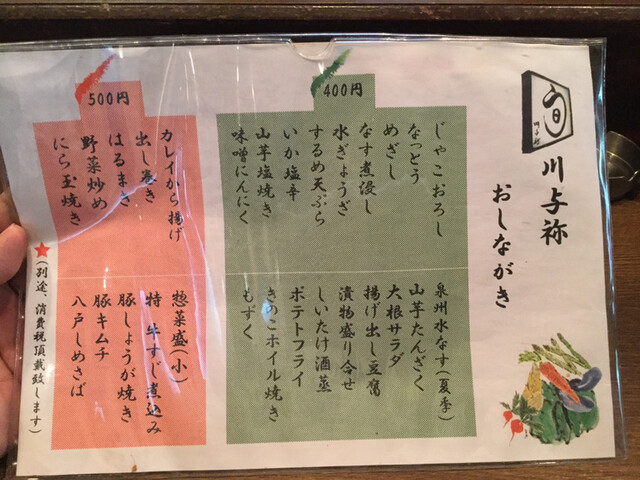 旬
川与祢
川与祢
おしながき
400円
じゃこおろし
なっとう
めざし
なす煮浸し
水ぎょうざ
するめ天ぷら
いか塩辛
山芋塩焼き
味噌にんにく
泉州水なす(夏季)
山芋たんざく
大根サラダ
揚げ出し豆腐
漬物盛り合せ
しいたけ酒蒸
ポテトフライ
きのこホイル焼き
もずく
500円
カレイから揚げ
出し巻き
はるまき
野菜炒め
にら玉焼き
惣菜盛(小)
特 牛すじ煮込み
豚しょうが焼き
豚キムチ
八戸しめさば
★(別途、消費税頂戴致します)